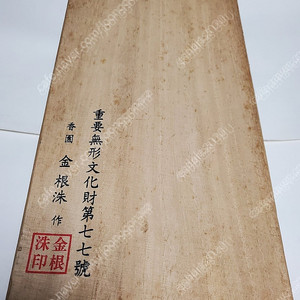 重要無形文化財第七七號
金根洙 作
金根
洙印